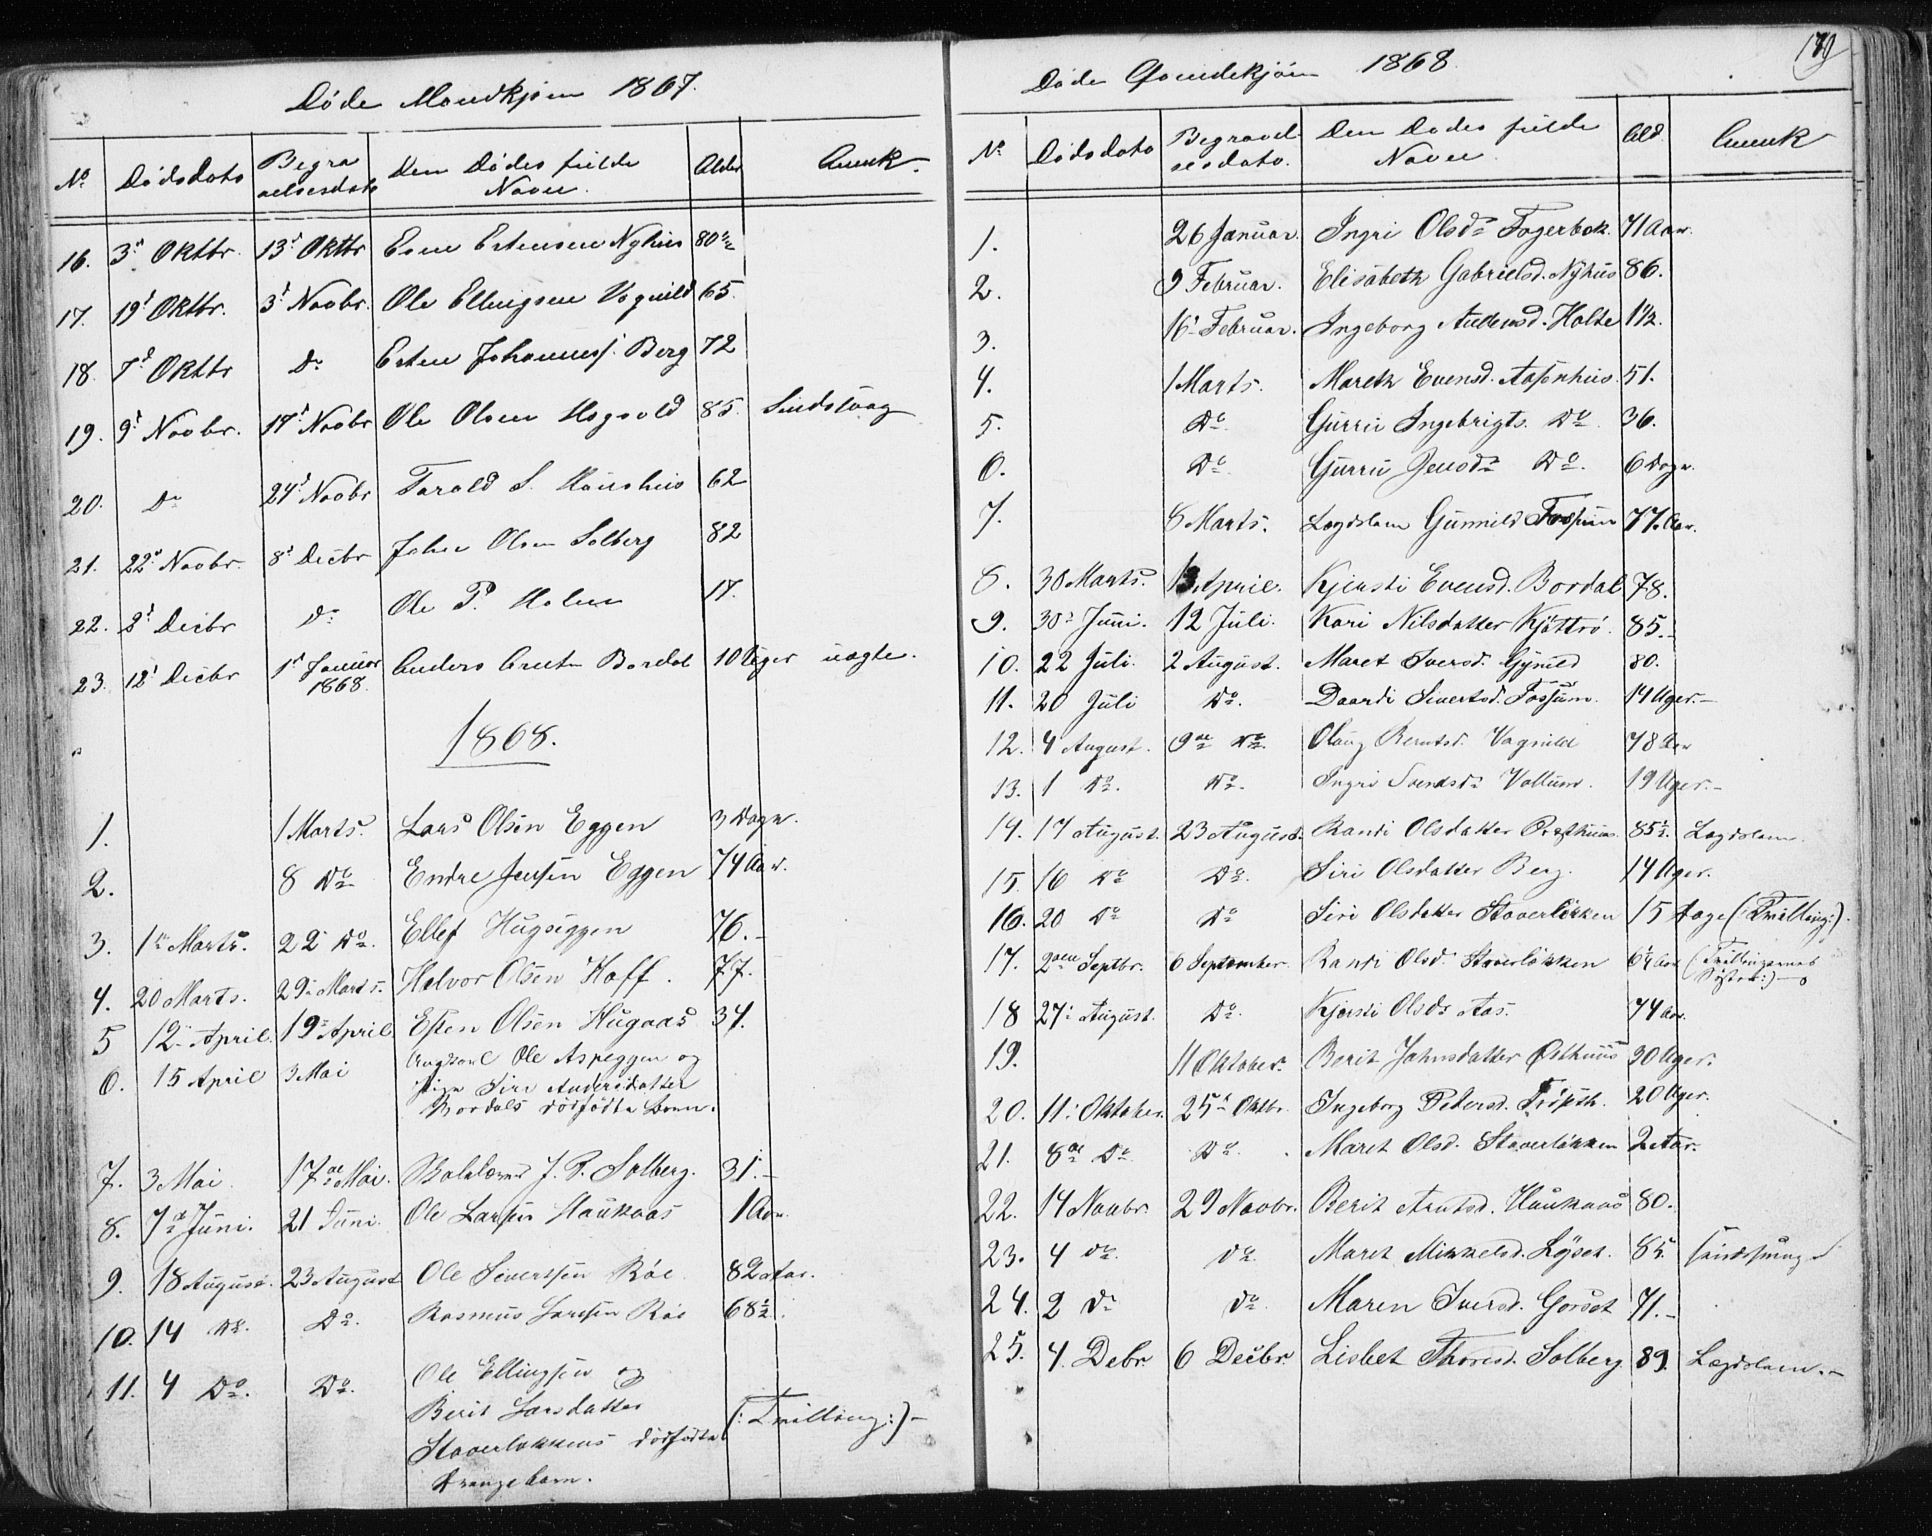 Døde Mandkjøn 1867.
No Dødsdato Begra velsesdato Den Dødes fulde Navn. Alder Anmk.
16. 3d Oktbr. 13d Oktbr Esten Estensen Nyhus 80
17. 19d Oktbr. 3d Novbr. Ole Ellingsen Vognild 65.
18. 7d Oktbr Do Esten Johanness. Berg 72
19. 9d Novbr. 17d Novbr Ole Olsen Hogsvold 85. Sindssvag
20. Do 24d Novbr Tarald S. Haushus 62
21. 22d Novbr. 8d Decbr John Olsen Solberg 82
22. 2d Decbr Do Ole P. Holen 17.
23. 12d Decbr 1d Januar 1868. Anders Arntsn Bordal 10 Uger uægte.
1868.
1. 1 Marts. Lars Olsen Eggen 3 Døgn.
2. 8 Do Endre Jensen Eggen 74 Aar.
3. 1ste Marts. 22 Do. Ellef Hugsiggen 76.-
4. 20 Marts. 29 Marts. Halvor Olsen Hoff. 77.
5 12 April. 19 April. Esten Olsen Hugaas 34.
6. 15 April 3 Mai Ungkarl Ole Aspeggen og
Pige Siri Andersdatter
Bordals dødfødte Barn.
7. 3 Mai 17de Mai. J. P. Solberg. 31.-
8. 7de Juni. 21 Juni. Ole Larsen Haukaas 1 Aar.
9. 18 August. 23 August Ole Sivertsen Røe 82 Aar.
10. 14 Do. Do. Rasmus Larsen Røe 68½.
11. 4 Do. Do. Ole Ellingsen og
Berit Larsdatter
Stoverløkkens dødfødte (: Trilling:)-
Drengebarn.
Døde Qvindekjøn 1868.
179
No Dødsdato Begravel sesdato. Den Dødes fulde Navn. Ald. Anmk
1. 26 Januar. Ingri Olsdr Fagerbek. 71 Aar.
2. 9 Februar. Elisabeth Gabrielsd. Nyhus 86.
3. 16 Februar. Ingeborg Andersd. Holte 1½.
4. 1 Marts. Mareth Evensd. Aspnhus 51.
5. Do. Gurrú Ingebrigts. Do. 36.
6. Do. Gurrú Jensdr Do. 6 Døgn.
7. 8 Marts. Lægdslem Gunnild Fossum 77. Aar.
8. 30 Marts. 13 April. Kjersti Evensd. Bordal 78.
9. 30 Juni. 12 Juli. Kari Nilsdatter Kjøttrø. 85.-
10. 22 Juli. 2 August. Maret Iversd. Gynild 80.
11. 20 Juli Do. Daardi Sivertsd. Fossum. 14 Uger.-
12. 4 August. 9de Do. Olaug Berntsd. Vognild 78 Aar
13. 1 Do. Do. Ingri Svendsdr Vollum. 19 Uger.-
14. 17 August. 23 August. Randi Olsdatter Præsthuus. 85½. Lægdslem.
15. 16 Do Do. Siri Olsdatter Berg. 14 Uger.
16. 20 Do Do Siri Olsdatter Stoverløkken 15 Dage (:Trilling:).
17. 2den Septbr. 6 September. Randi Olsd. Stoverløkken 6¼ Aar (Trillingernes Søster:)-
18 27 August. Do. Kjersti Olsdr Aas. 74 Aar.
19. 11 Oktober. Berit Jahnsdatter Østhuus 30 Uger.
20. 11 Oktober. 25de Oktbr. Ingeborg Pedersd. 20 Uger.
21. 8de Do. Do. Maret Olsd. Stoverløkken 2 Aar.
22. 14 Novbr. 29 Novbr. Berit Arntsd. Haukaas 80.
23. 4 do. do. Maret Mikkelsd. Løset. 85. Sindssvag
24. 2 Do do. Maren Iversd. Gorset 71.-
25. 4. Debr 6 Decbr. Lisbet Thoresd. Solberg 89. Lægdslem.-